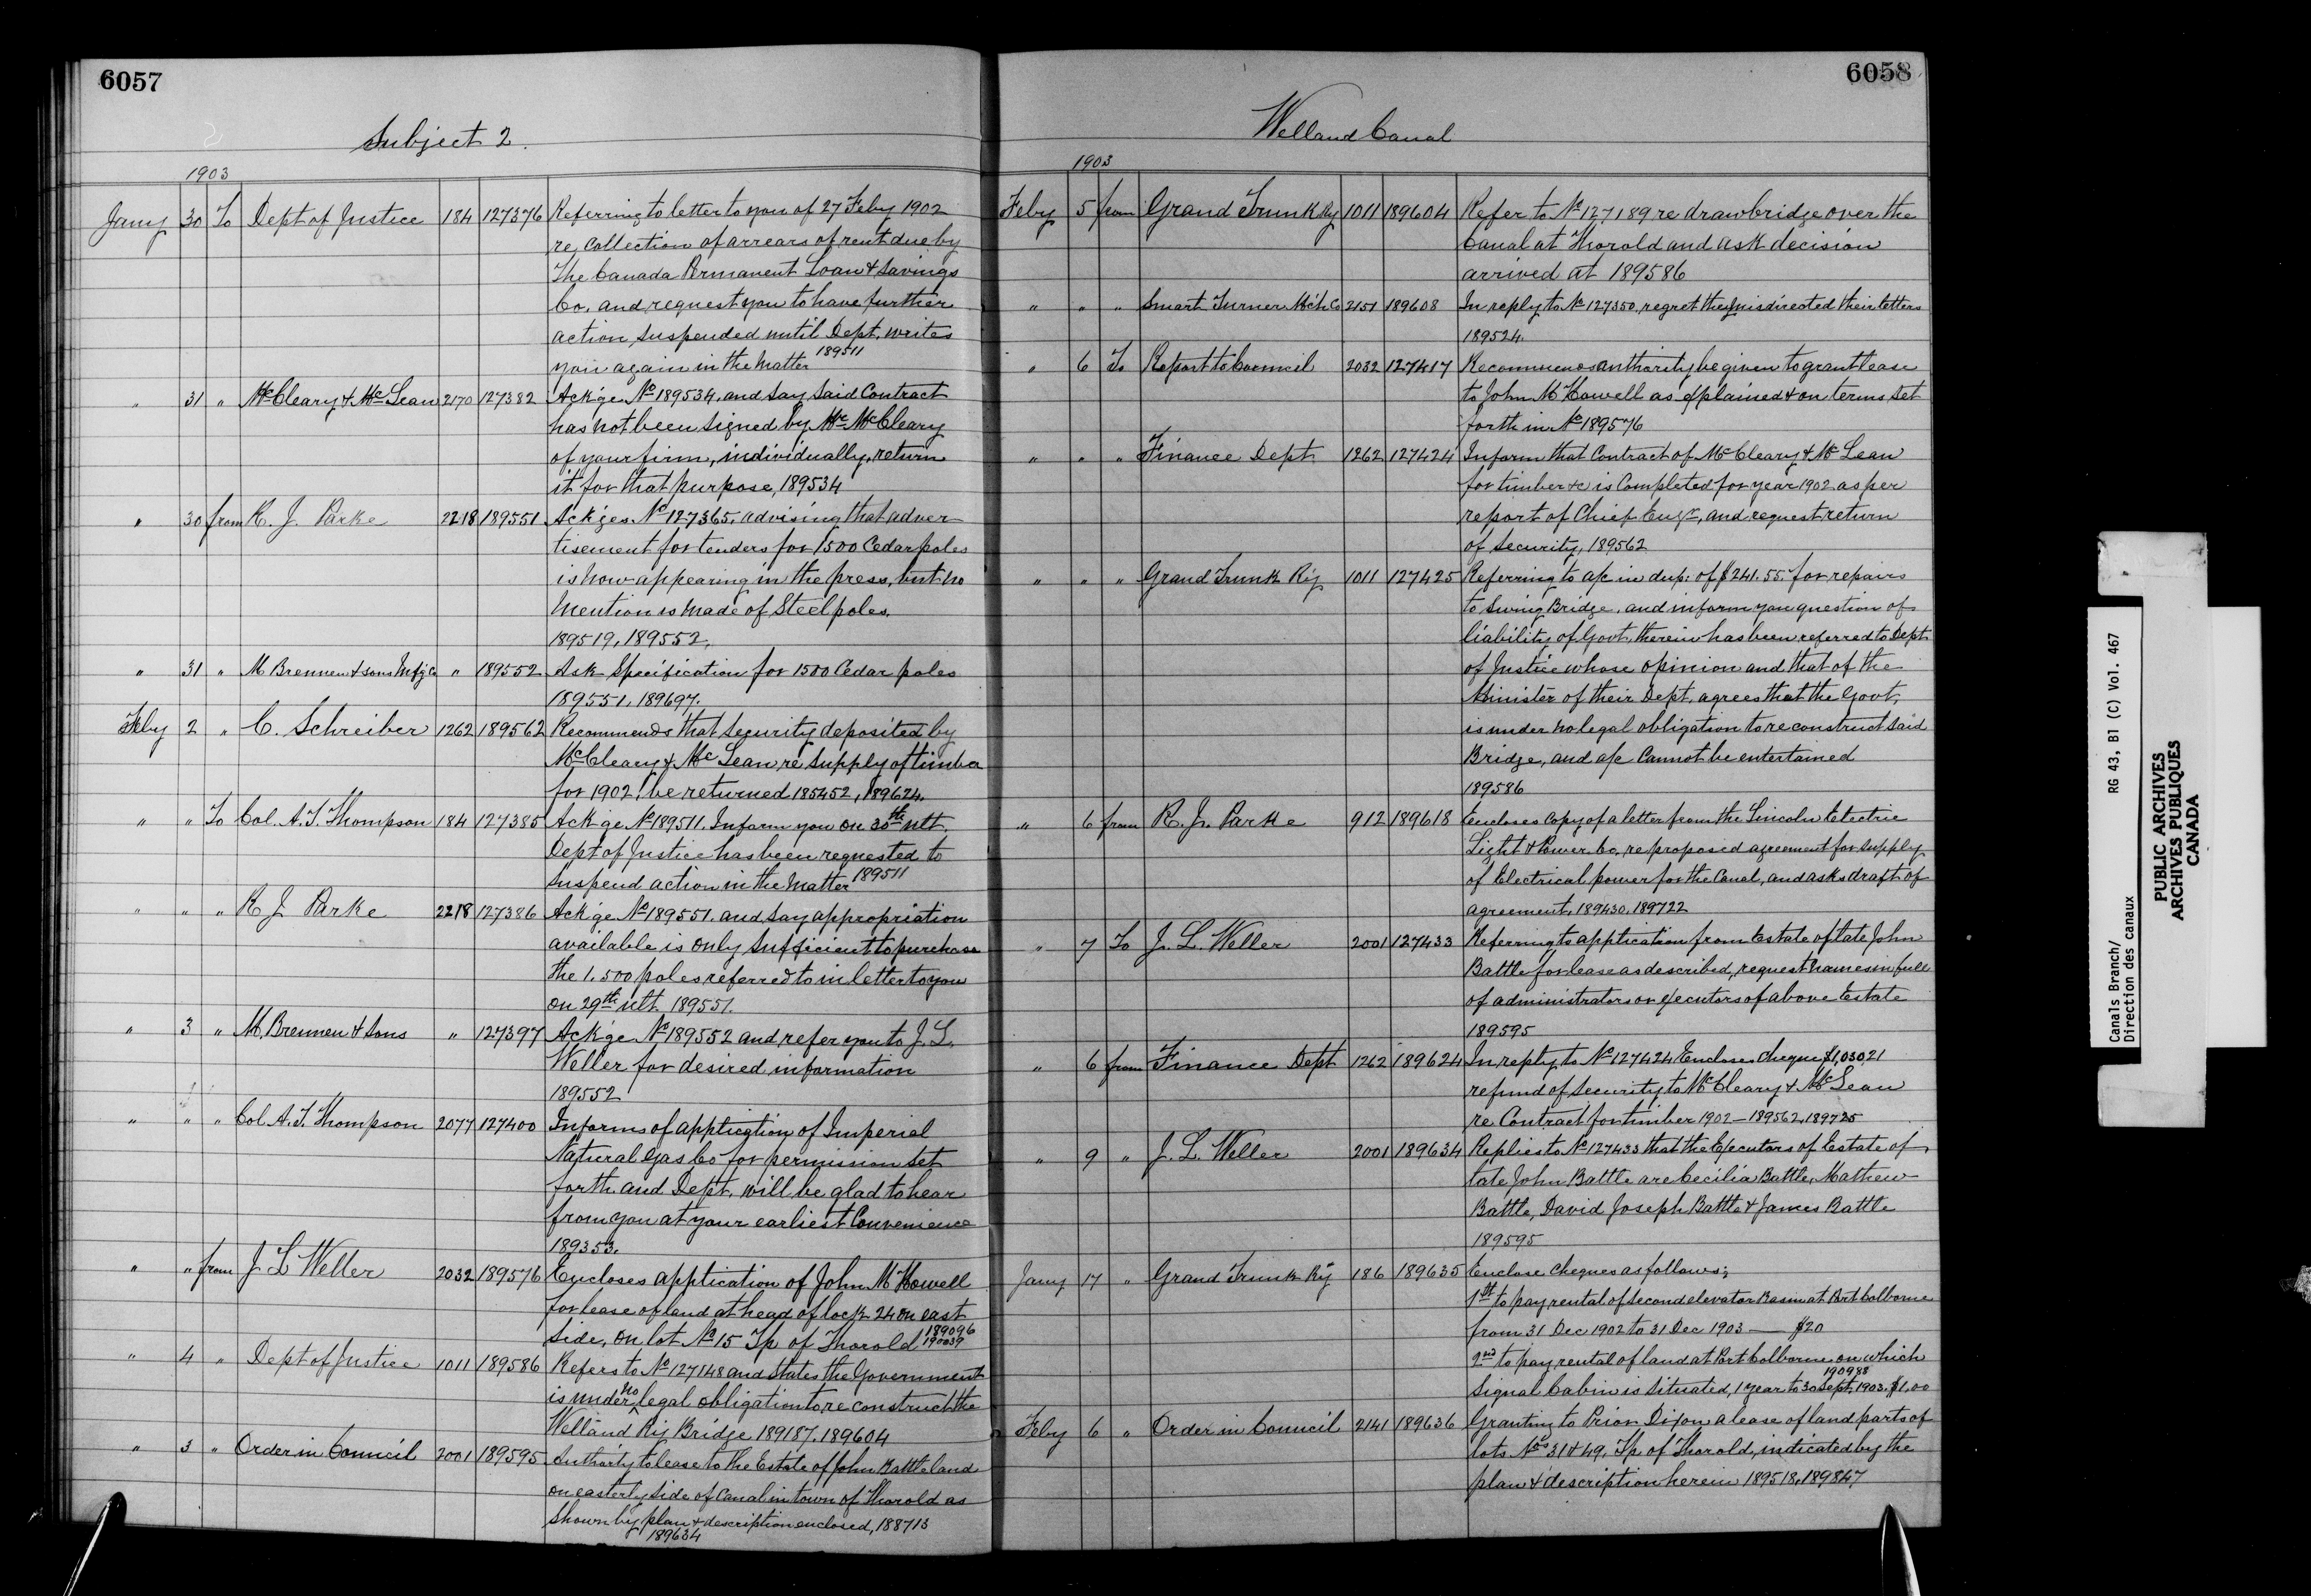 6057
Subject 2.
1903
Jany 30 To Dept of Justice 184 127376 Referring to letter to you of 27 Feby 1902
re collection of arrears of rent due by
The Canada Permanent Loan & Savings
Co. and request you to have further
action suspended until Dept. writes
you again in the matter 189511
" 31 " McCleary & McLean 2170 127382 Ack'ge No 189534. and say said Contract
has not been signed by Mr McCleary
of your firm, individually, return
it for that purpose, 189534
" 30 from R. J. Parke 2218 189551 Ack'ges No 127365. advising that adver
tisement for tenders for 1500 Cedar poles
is now appearing in the press, but no
mention is made of Steel poles.
189519, 189552,
" 31 " M Brennen & sons Mfg Co " 189552 Ask Specification for 1500 Cedar poles
189551, 189697.
Feby 2 " C. Schreiber 1262 189562 Recommends that security deposited by
McCleary & McLean re supply of timber
for 1902, be returned 185452, 189624.
" " To Col. A. T. Thompson 184 127385 Ack'ge No 189511. Inform you on 30th ult.
Dept of Justice has been requested to
suspend action in the matter 189511
" " " R J Parke 2218 127386 Ack'ge No 189551. and say appropriation
available is only sufficient to purchase
the 1.500 poles referred to in letter to you
on 29th ult. 189551.
" 3 " M. Brennen & Sons " 127397 Ack'ge No 189552 and refer you to J. L.
Weller for desired information
189552
" " " Col. A. T. Thompson 2077 127400 Informs of application of Imperial
Natural Gas Co for permission set
forth and Dept. will be glad to hear
from you at your earliest Convenience
189353.
" " from J L Weller 2032 189576 Encloses application of John M Howell
for lease of land at head of lock 24 on east
side, on lot No 15 Tp of Thorold 189096 190039
" 4 " Dept of Justice 1011 189586 Refers to No 127148 and states the Government
is under no legal obligation to reconstruct the
Welland Ry Bridge 189187. 189604
" 3 " Order in Council 2001 189595 Authority to lease to the Estate of John Battle land
on easterly side of Canal in town of Thorold as
shown by plan & description enclosed, 188713
189634
6058
Welland Canal
1903
Feby 5 from Grand Trunk Ry 1011 189604 Refer to No 127189 re drawbridge over the
Canal at Thorold and ask decision
arrived at 189586
" " " Smart Turner Mch Co 2151 189608 In reply to No 127350, regret they misdirected their letters
189524.
" 6 To Report to Council 2032 127417 Recommends authority be given to grant lease
to John M Howell as explained & on terms set
forth in No 189576
" " " Finance Dept 1262 127424 Inform that Contract of McCleary & McLean
for timber &c is Completed for year 1902 as per
report of Chief Engr, and request return
of security, 189562
" " " Grand Trunk Ry 1011 127425 Referring to a/c in dup: of $241.55. for repairs
to Swing Bridge, and inform you question of
liability of Govt. therein has been referred to Dept
of Justice whose opinion and that of the
Minister of their Dept, agrees that the Govt,
is under no legal obligation to reconstruct said
Bridge, and a/c Cannot be entertained
189586
" 6 from R. J. Parke 912 189618 Encloses copy of a letter from the Lincoln Electric
Light & Power Co, re proposed agreement for supply
of Electrical power for the Canal, and asks draft of
agreement, 189430, 189722
" 7 To J. L. Weller 2001 127433 Referring to application from Estate of late John
Battle for lease as described, request names in full
of administrators or executors of above Estate
189595
" 6 from Finance Dept 1262 189624 In reply to No 127424 Encloses cheque $1,030.21
refund of security to McCleary & McLean
re Contract for timber 1902 - 189562, 189725
" 9 " J. L. Weller 2001 189634 Replies to No 127433 that the Executors of Estate of
late John Battle are Cecilia Battle, Mathew
Battle, David Joseph Battle & James Battle
189595
Jany 17 " Grand Trunk Ry 186 189635 Enclose cheques as follows;
1st to pay rental of second elevator Basin at Port Colborne
from 31 Dec 1902 to 31 Dec 1903 — $20
2nd to pay rental of land at Port Colborne on which
190988
Signal Cabin is situated, 1 year to 30 Sept. 1903. $1.00
Feby 6 " Order in Council 2141 189636 Granting to Prior Dixon a lease of land parts of
lots Nos 31 & 49, Tp. of Thorold, indicated by the
plan & description herein 189518, 189847
Canals Branch/ RG 43, B1 (C) Vol. 467
Direction des canaux
PUBLIC ARCHIVES
ARCHIVES PUBLIQUES
CANADA